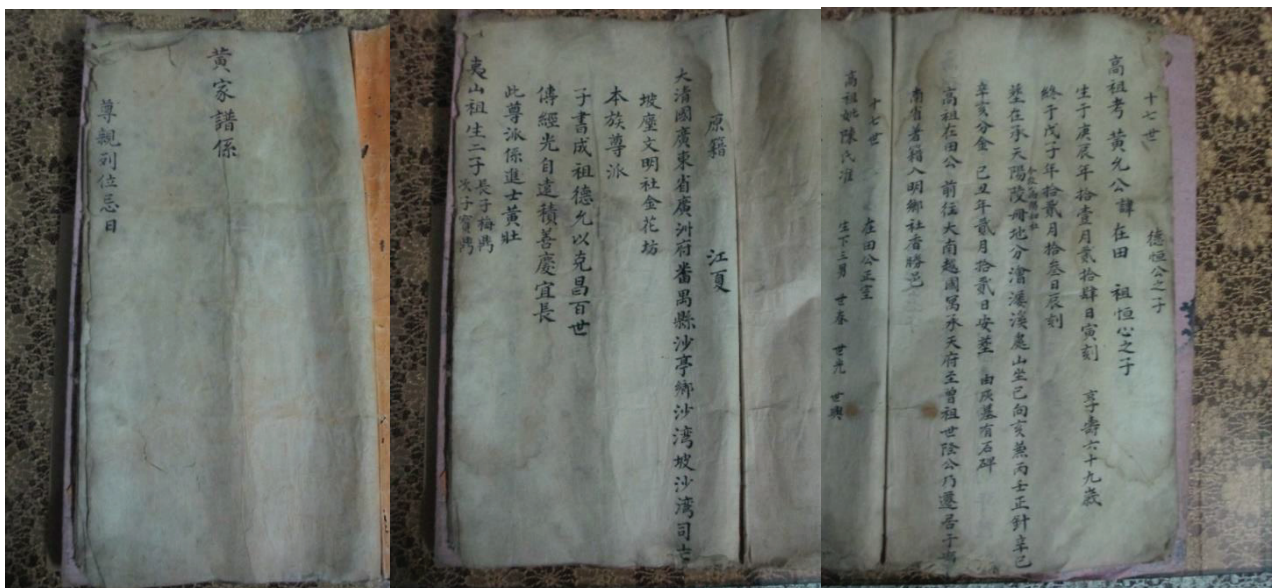 黄家譜係
尊親列位忌日
原籍　江夏
大清國廣東省廣洲府番禺縣沙亭鄉沙湾坡沙湾司士
坡塵文明社金花坊
本族尊派
子書成祖德允以克昌百世
傳經光自遠積善慶宜長
此尊派係進士黃壯
夷山祖生二子
長子梅
次子寶
十七世　德恒公之子
高祖考黃允公諱在田　祖恒心之子
生于庚辰年拾壹月貳拾肆日寅刻　享壽六十九歲
終于戊子年拾貳月拾叁日辰刻
塟在承天陽陵冊地分溪處山坐巳向亥兼丙壬正針辛巳
辛亥分金　己丑年貳月拾貳日安塟　由灰墓有石碑
高祖在田公　前往大南越國寓承天府至曾祖世陸公乃遷居于
南省著籍入明鄉社香勝邑
十七世　在田公正室
高祖妣陳氏准　生下三男　世春　世光　世興